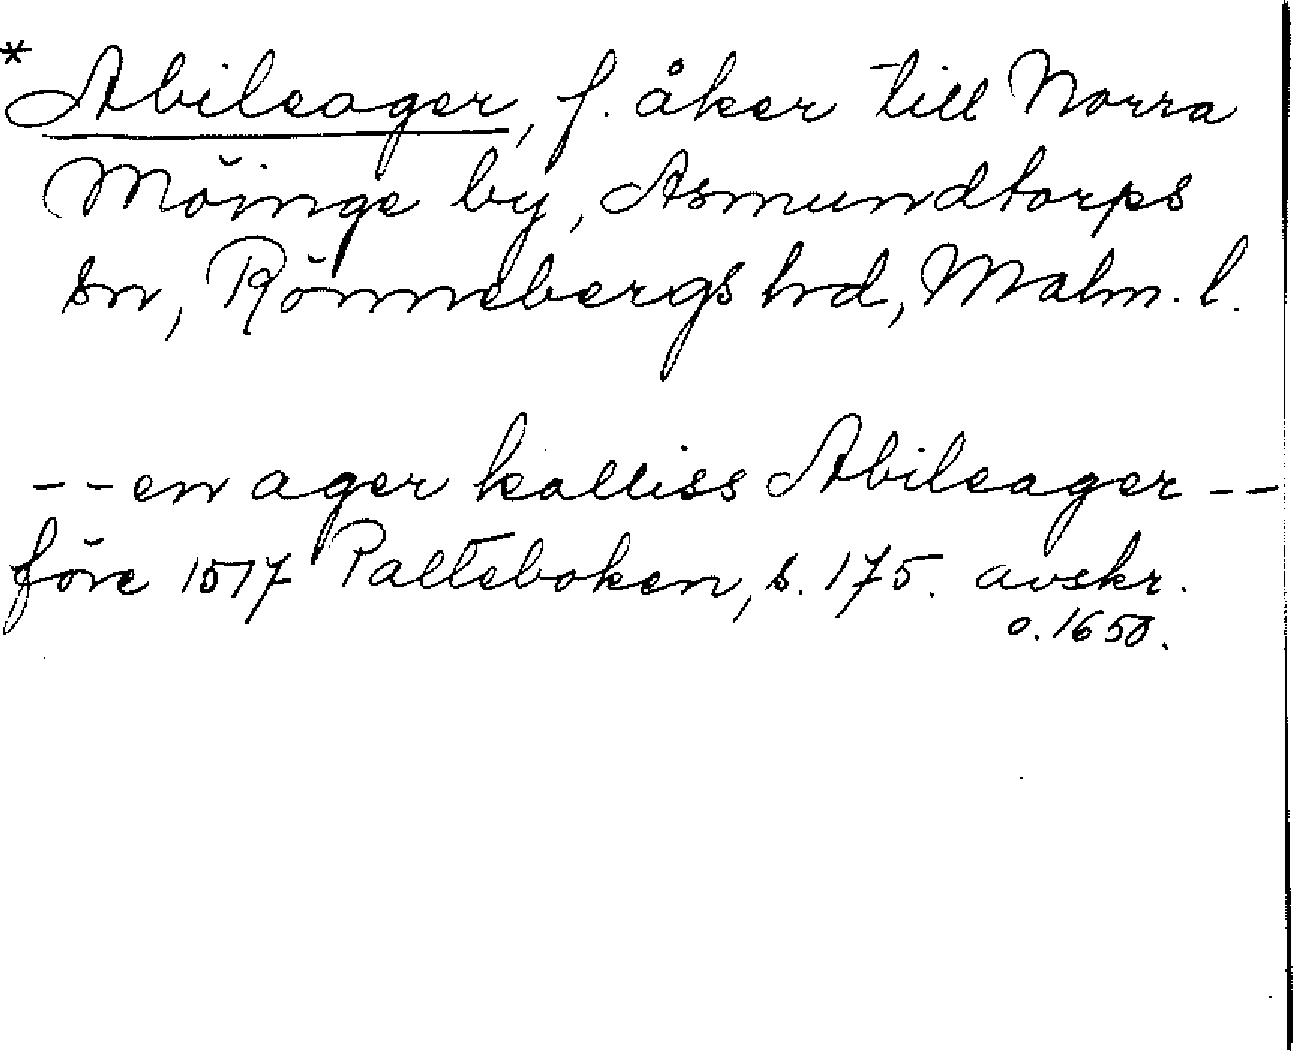 * Abileager, f. åker till Norra
Möinge by, Asmundtorps
sn, Rönnebergs hrd, Malm. l.
-- en ager kalliss Abileager --
före 1517 Palteboken, s. 175. avskr.
o. 1650.